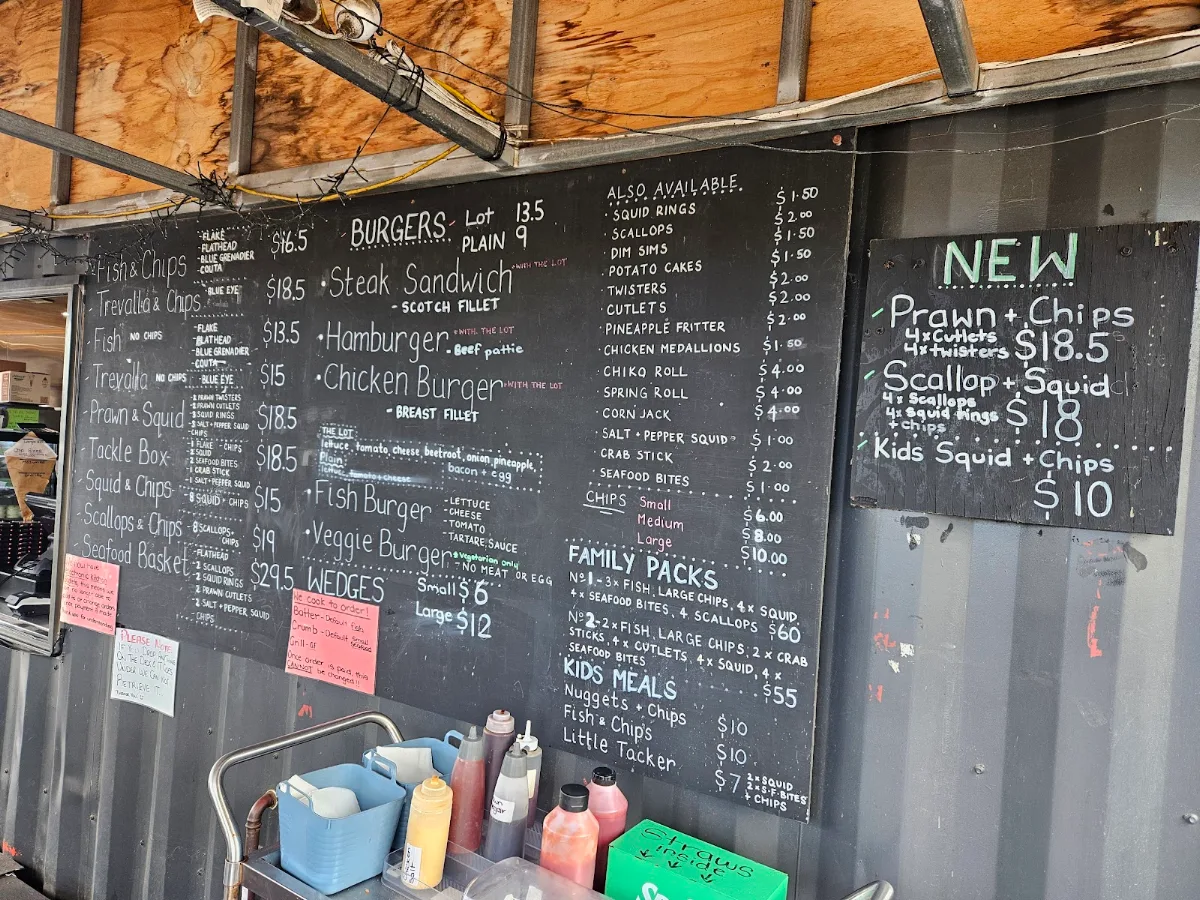 Fish & Chips -FLAKE $16.5
-FLATHEAD
-BLUE GRENADIER
-COUTA
Trevalla & Chips -BLUE EYE $18.5
Fish NO CHIPS -FLAKE $13.5
-FLATHEAD
-BLUE GRENADIER
-COUTA
Trevalla NO CHIPS -BLUE EYE $15
Prawn & Squid $18.5
PRAWN TWISTERS
PRAWN CUTLETS
SQUID RINGS
SALT + PEPPER SQUID
CHIPS
Tackle Box $18.5
1 FLAKE + CHIPS
SQUID
2 SEAFOOD BITES
1 CRAB STICK
1 SALT + PEPPER SQUID
Squid & Chips 8 SQUID + CHIPS $15
Scallops & Chips 8 SCALLOPS + $19
CHIPS
Seafood Basket $29.5
-FLATHEAD
2 SCALLOPS
2 SQUID RINGS
2 PRAWN CUTLETS
2 SALT + PEPPER SQUID
CHIPS
BURGERS Lot 13.5
PLAIN 9
•Steak Sandwich •WITH THE LOT
-SCOTCH FILLET
•Hamburger •WITH THE LOT
-Beef pattie
•Chicken Burger •WITH THE LOT
-BREAST FILLET
THE LOT
lettuce, tomato, cheese, beetroot, onion, pineapple,
bacon + egg
Plain
lettuce, tomato + cheese
•Fish Burger -LETTUCE
-CHEESE
-TOMATO
-TARTARE SAUCE
•Veggie Burger •vegetarian only
-NO MEAT OR EGG
WEDGES Small $6
Large $12
ALSO AVAILABLE
•SQUID RINGS $1.50
•SCALLOPS $2.00
•DIM SIMS $1.50
•POTATO CAKES $1.50
•TWISTERS $2.00
•CUTLETS $2.00
•PINEAPPLE FRITTER $2.00
•CHICKEN MEDALLIONS $1.50
•CHIKO ROLL $4.00
•SPRING ROLL $4.00
•CORN JACK $4.00
•SALT + PEPPER SQUID $1.00
CRAB STICK $2.00
SEAFOOD BITES $1.00
CHIPS Small $6.00
Medium $8.00
Large $10.00
FAMILY PACKS
Nº1-3× FISH, LARGE CHIPS, 4× SQUID,
4× SEAFOOD BITES, 4 SCALLOPS $60
Nº2-2× FISH, LARGE CHIPS, 2× CRAB
STICKS, 4× CUTLETS, 4× SQUID, 4×
SEAFOOD BITES $55
KIDS MEALS
Nuggets + Chips $10
Fish & Chips $10
Little Tacker $7 2× SQUID
2× S.F. BITES
+ CHIPS
NEW
Prawn + Chips
4×Cutlets
4×twisters $18.5
Scallop + Squid
4× Scallops
4× Squid rings
+ chips $18
Kids Squid + Chips
$10
We cook to order!
Batter-Default fish
Crumb-Default Small Seafood
Grill-GF
Once order is paid, this
CANNOT be changed!!
PLEASE NOTE
IF YOU DROP
ON THE DECK IT GOES
UNDER WE CAN NOT
RETRIEVE IT
Straws
inside